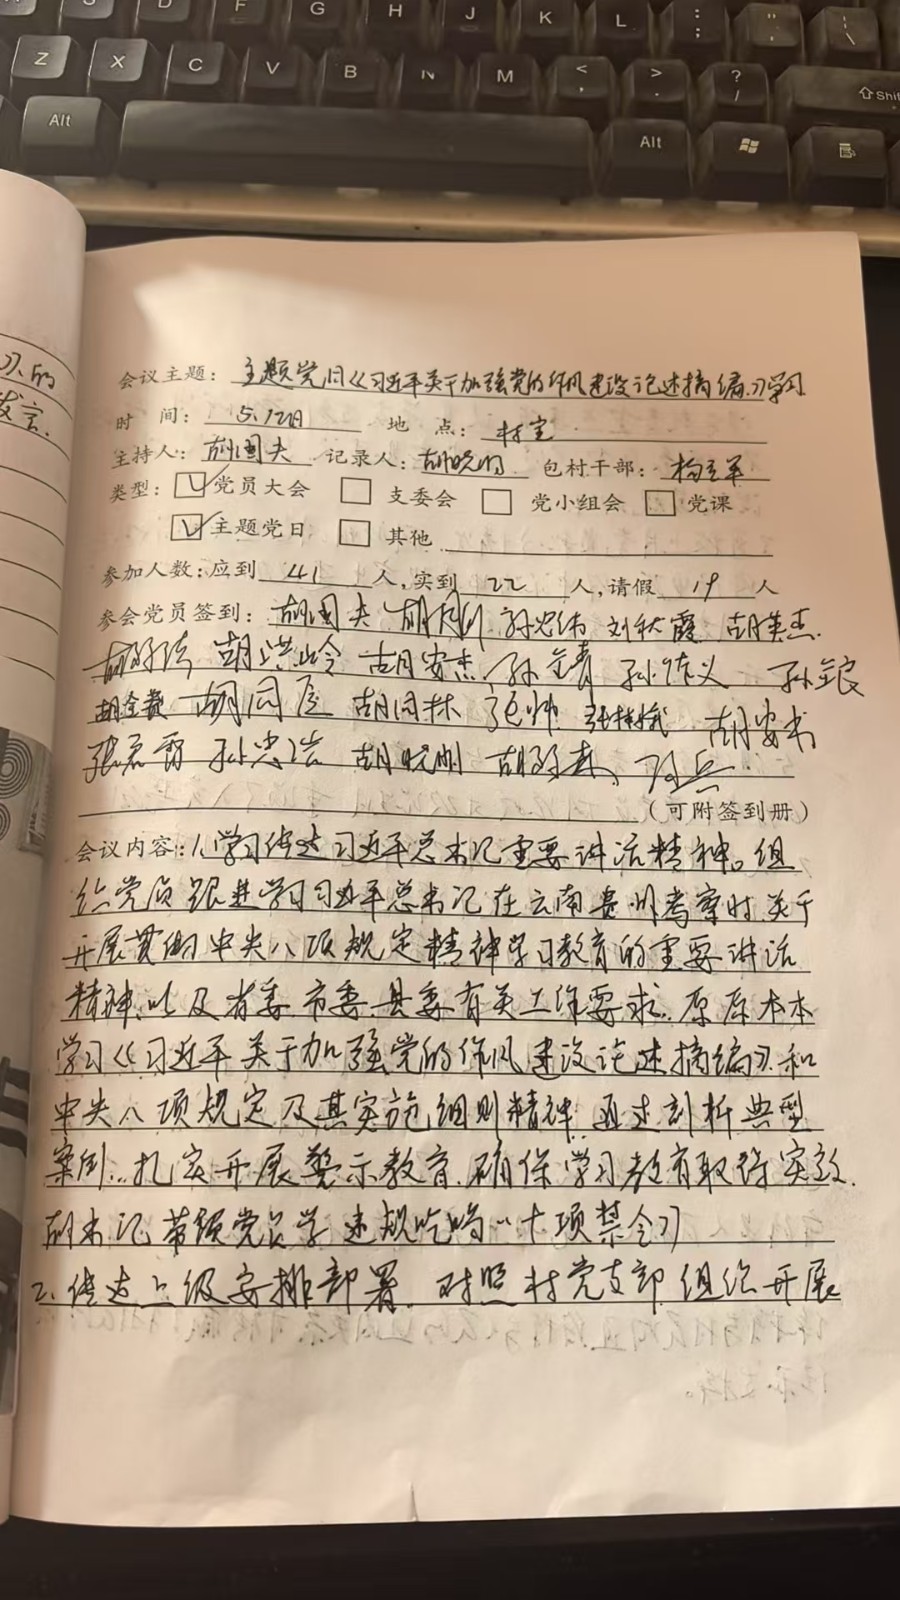 S D F G H J K L : ; " '
Z X C V B N M < , > . ? / ⇧Shift
Alt Alt
习的
发言.
会议主题：主题党日《习近平关于加强党的作风建设论述摘编》学习
时 间：5.12日 地 点：村室
主持人：胡国夫 记录人：胡晓刚 包村干部：杨
类型：☑党员大会 □支委会 □党小组会 □党课
☑主题党日 □其他
参加人数：应到 41 人,实到 22 人,请假 19 人
参会党员签到：胡国夫 胡 孙忠 刘秋霞 胡英杰.
胡 胡洪岭 胡安杰 孙 孙 义 孙
胡金 胡同 胡同林 张帅 张 胡安书
张 孙忠 胡晓刚 胡 兵
(可附签到册)
会议内容：1.学习传达习近平总书记重要讲话精神。组
织党员跟进学习习近平总书记在云南贵州考察时关于
开展贯彻中央八项规定精神学习教育的重要讲话
精神,以及省委、市委、县委有关工作要求.原原本本
学习《习近平关于加强党的作风建设论述摘编》和
中央八项规定及其实施细则精神.通过剖析典型
案例.扎实开展警示教育.确保学习教育取得实效.
胡书记带领党员学违规吃喝"十项禁令》
2.传达上级安排部署.对照村党支部组织开展